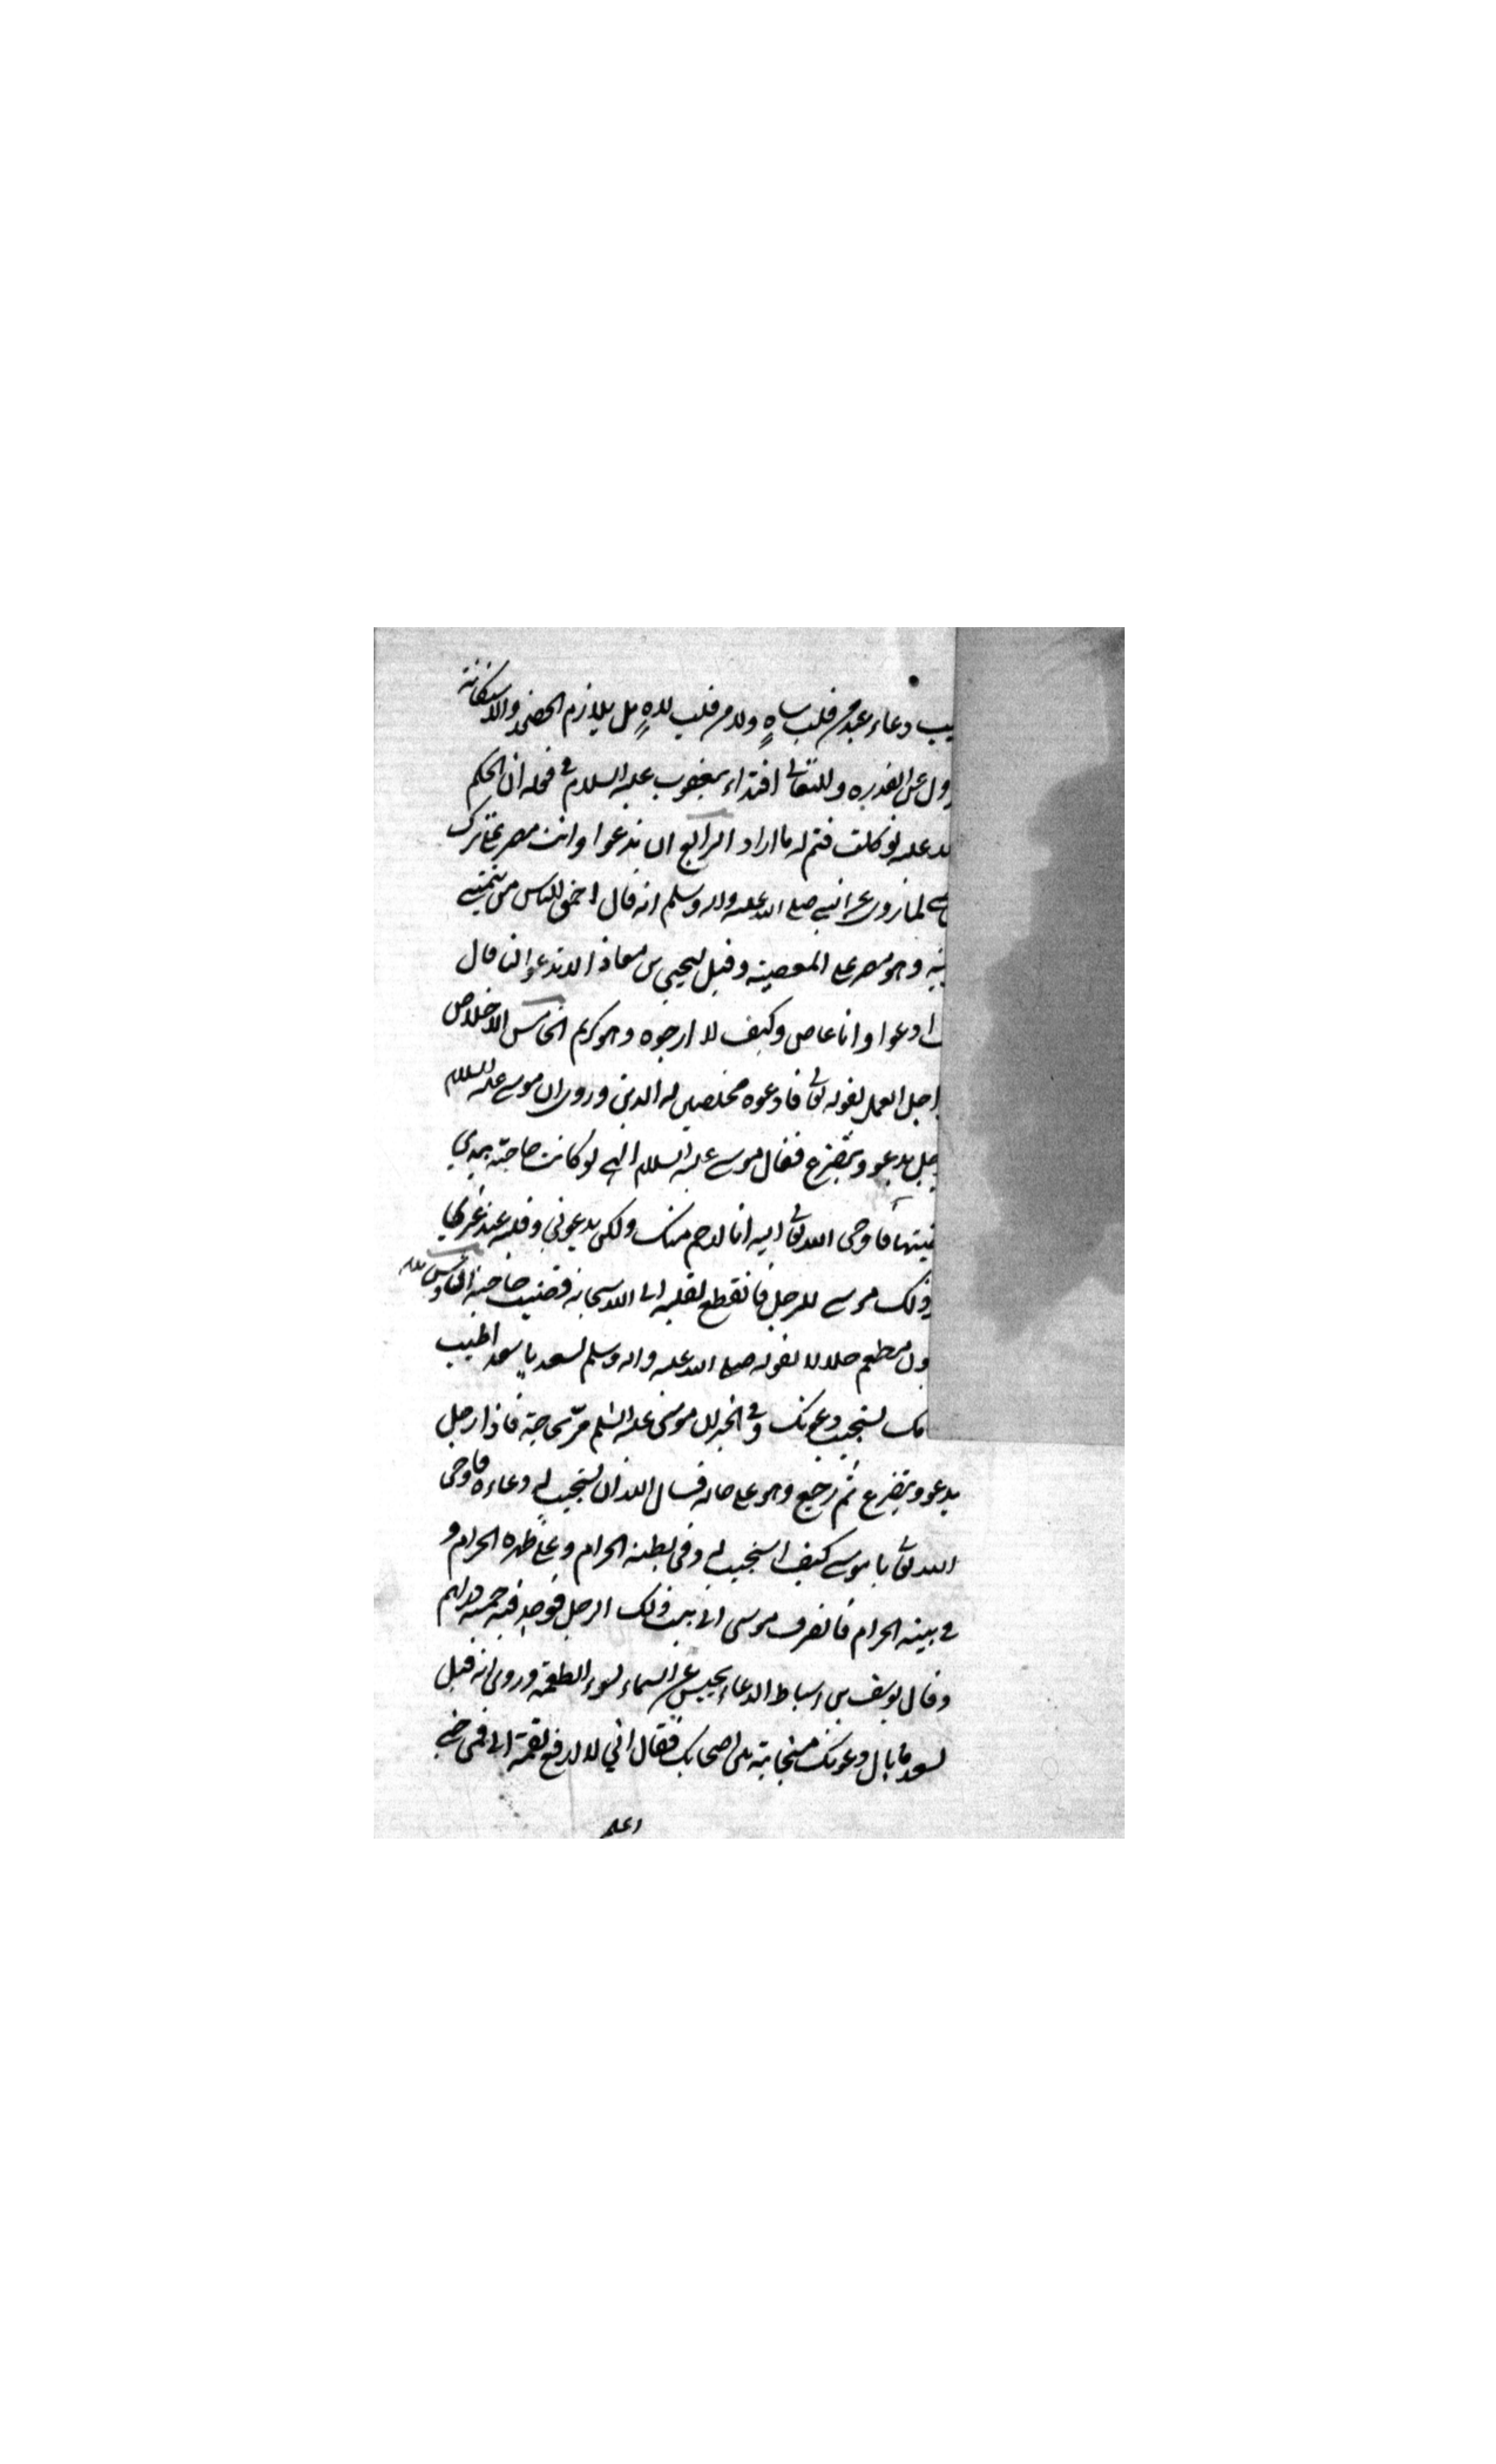 يب دعاء عبد من قلب ساه ولا من قلب لاه بل يلازم الخضوع والاستكانة
ول عن القدره والله تعالى اقتداء بيعقوب عليه السلام في قوله ان الحكم
لله عليه توكلت فتم له ما اراد الرابع ان تدعوا وانت مصر على ترك
لما روى عن النبي صلى الله عليه واله وسلم انه قال احمق الناس من يتمنى
وهو مصر على المعصية وقيل ليحيى بن معاذ الا تدعوا لنا قال
ادعوا وانا عاص وكيف لا ارجوه وهو كريم الخامس الاخلاص
اجل العمل لقوله تعا فادعوه مخلصين له الدين وروى ان موسى عليه السلام
جل يدعو ويتضرع فقال موسى عليه السلام الهي لو كانت حاجته بيدي
ضيتها فاوحى الله تعا اليه انا ارحم منك ولكن يدعوني وقلبه عند غيري
ذلك موسى للرجل فانقطع بقلبه الى الله سبحانه فقضيت حاجته
ول مطعم حلالا لقوله صلى الله عليه واله وسلم لسعد يا سعد اطيب
مك تستجيب دعوتك وفي الخبر ان موسى عليه السلم مر بحاجة فاذا رجل
يدعو ويتضرع ثم رجع وهو على حاله فسال الله ان يستجيب له دعاءه فاوحى
الله تعا يا موسى كيف استجيب له وفي بطنه الحرام وعلى ظهره الحرام و
في بيته الحرام فانصرف موسى الى بيت ذلك الرجل فوجد فيه خمسة دراهم
وقال يوسف بن اسباط الدعاء يحبس عن السماء لسوء الطعمة وروى انه قيل
لسعد ما بال دعوتك مستجابة من بين اصحابك فقال اني لا ارفع لقمة الى فمي حتى
اعلم